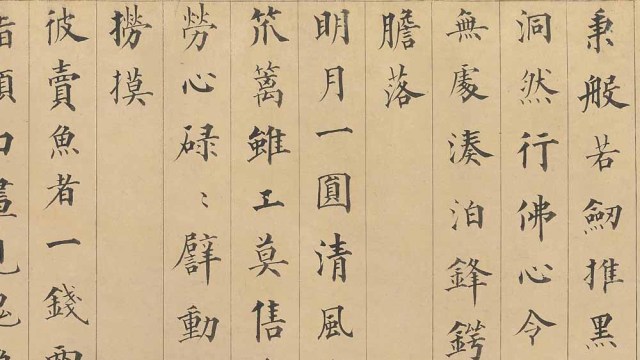 秉般若劒推黑
洞然行佛心令
無處湊泊鋒鍔
膽落
明月一圓清風
笊篱雖工莫售
勞心碌〻劈動
撈摸
彼賣魚者一錢